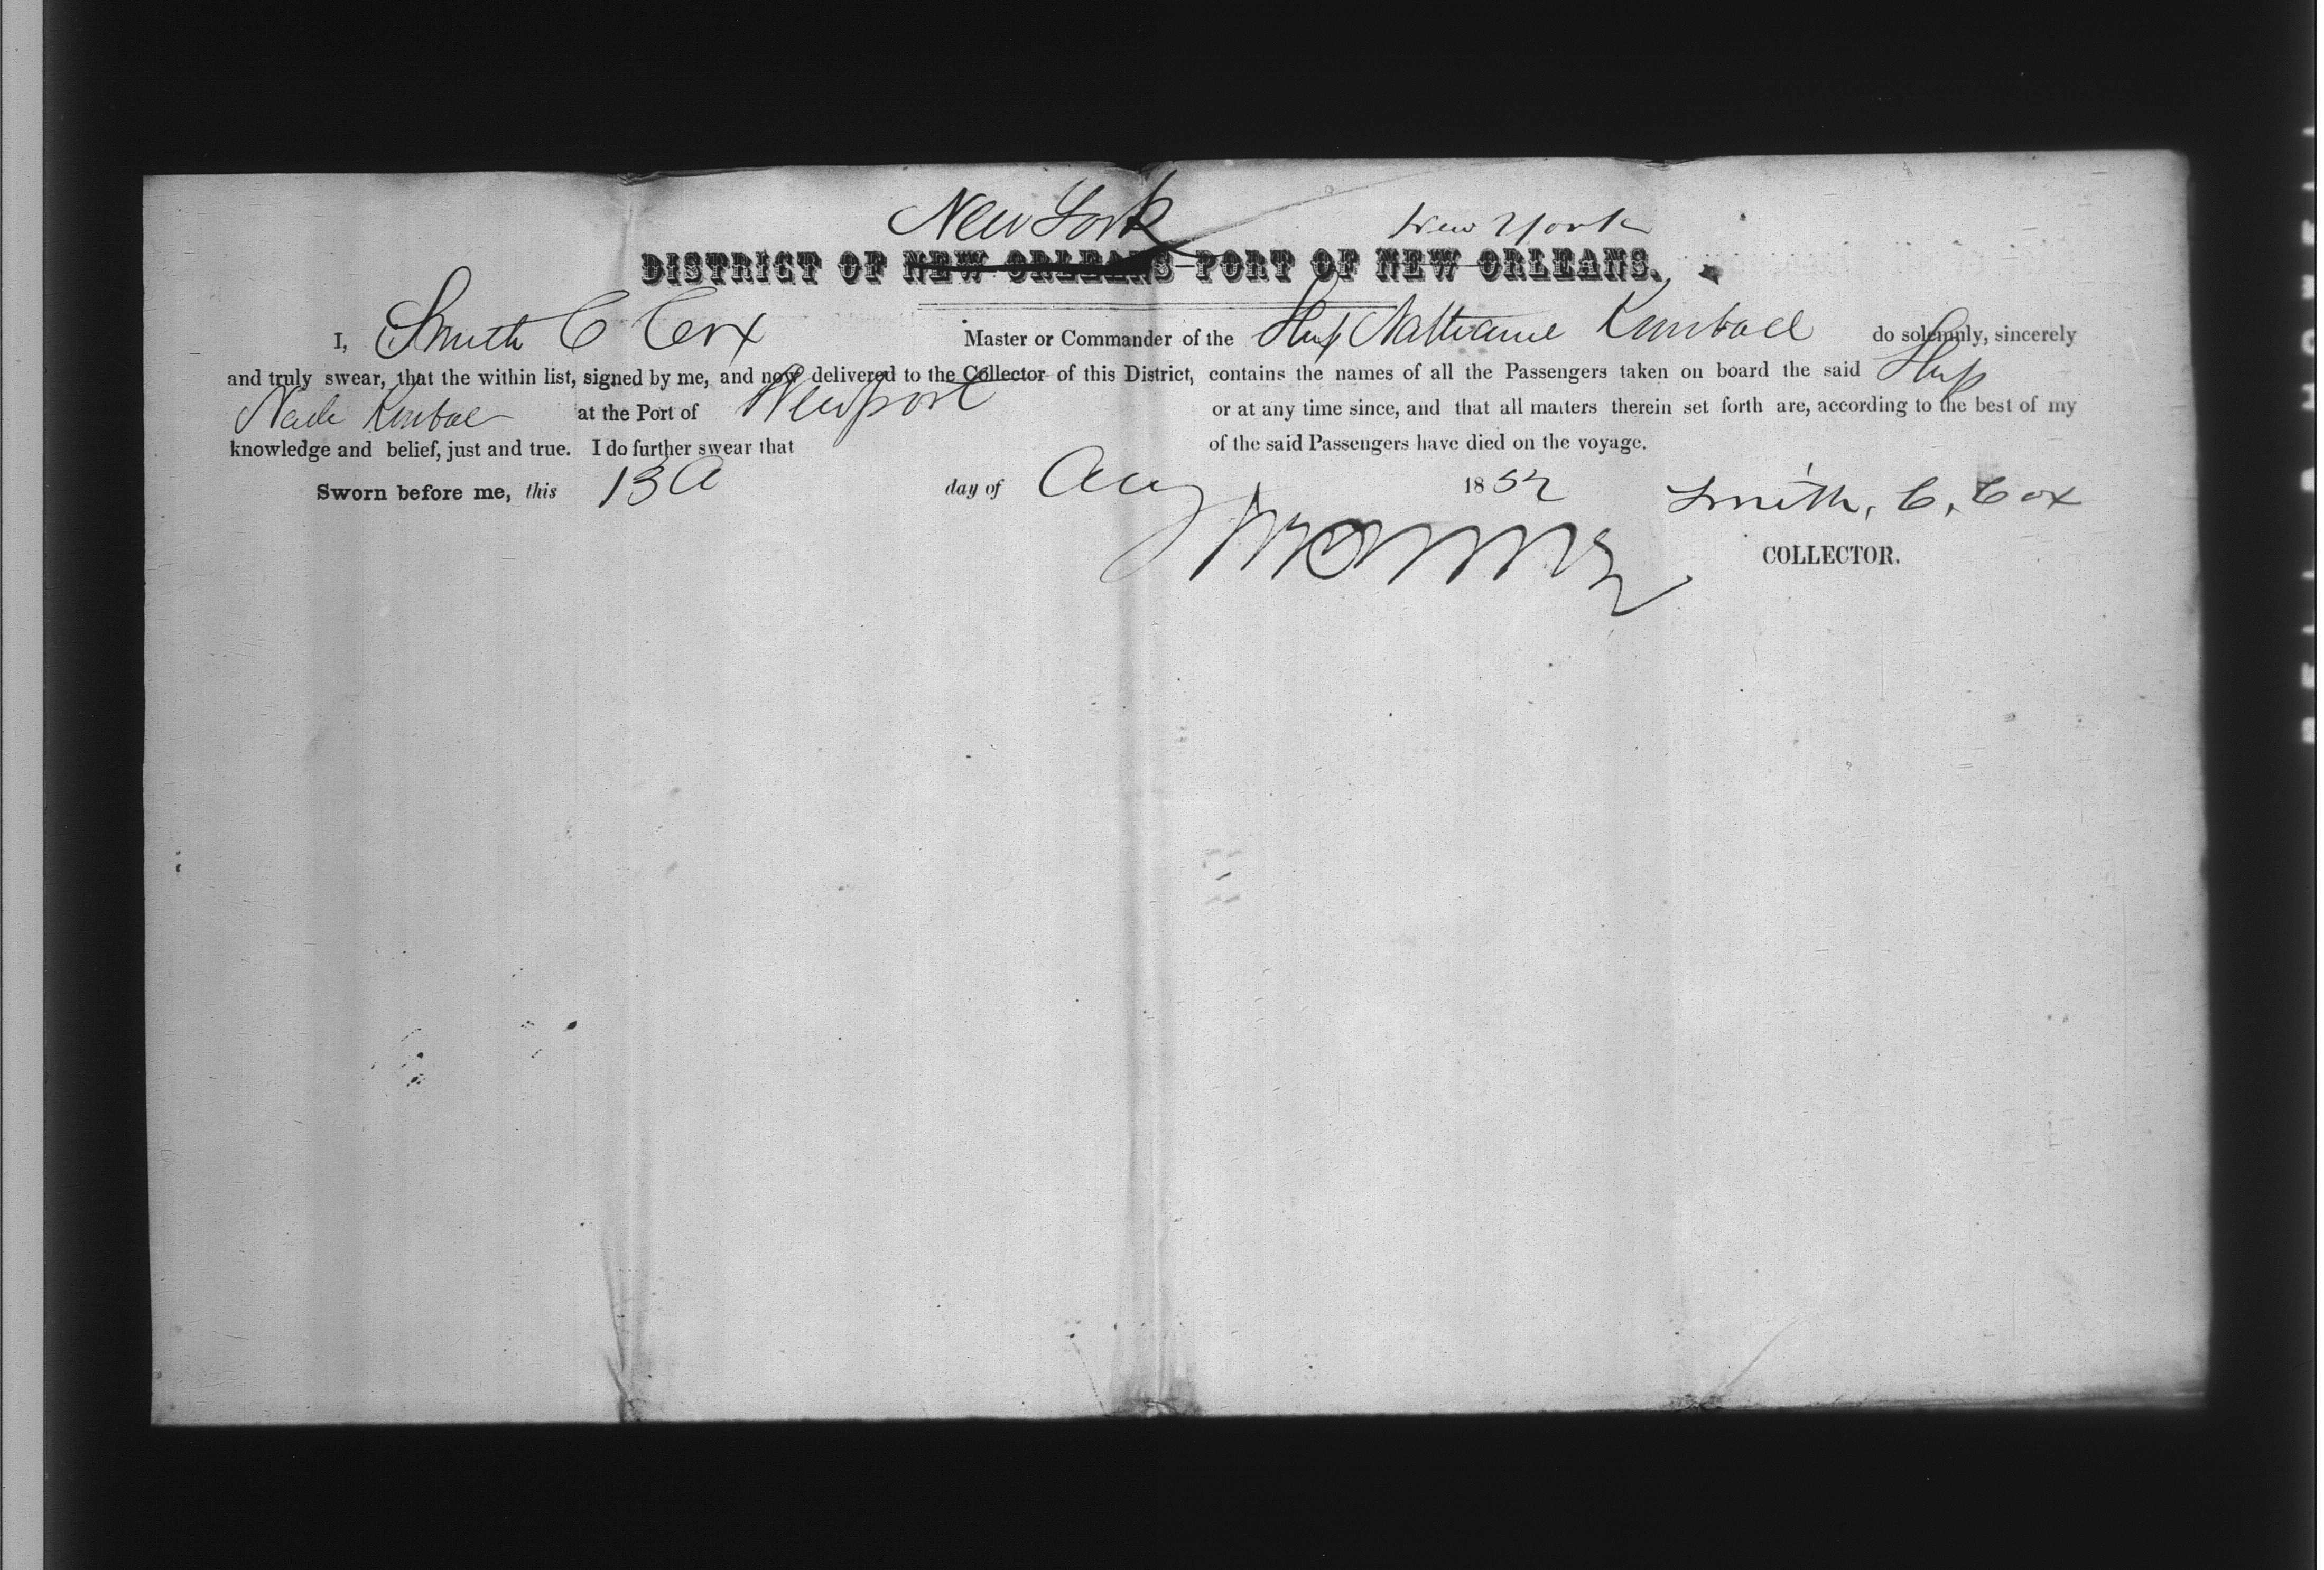 New York New York
DISTRICT OF NEW ORLEANS—PORT OF NEW ORLEANS.
I, Smith C Cox Master or Commander of the Ship Nathaniel Kimball do solemnly, sincerely
and truly swear, that the within list, signed by me, and now delivered to the Collector of this District, contains the names of all the Passengers taken on board the said Ship
Kimbal at the Port of Newport or at any time since, and that all matters therein set forth are, according to the best of my
knowledge and belief, just and true. I do further swear that of the said Passengers have died on the voyage.
Sworn before me, this 13 day of Aug 1852 Smith, C, Cox
COLLECTOR.